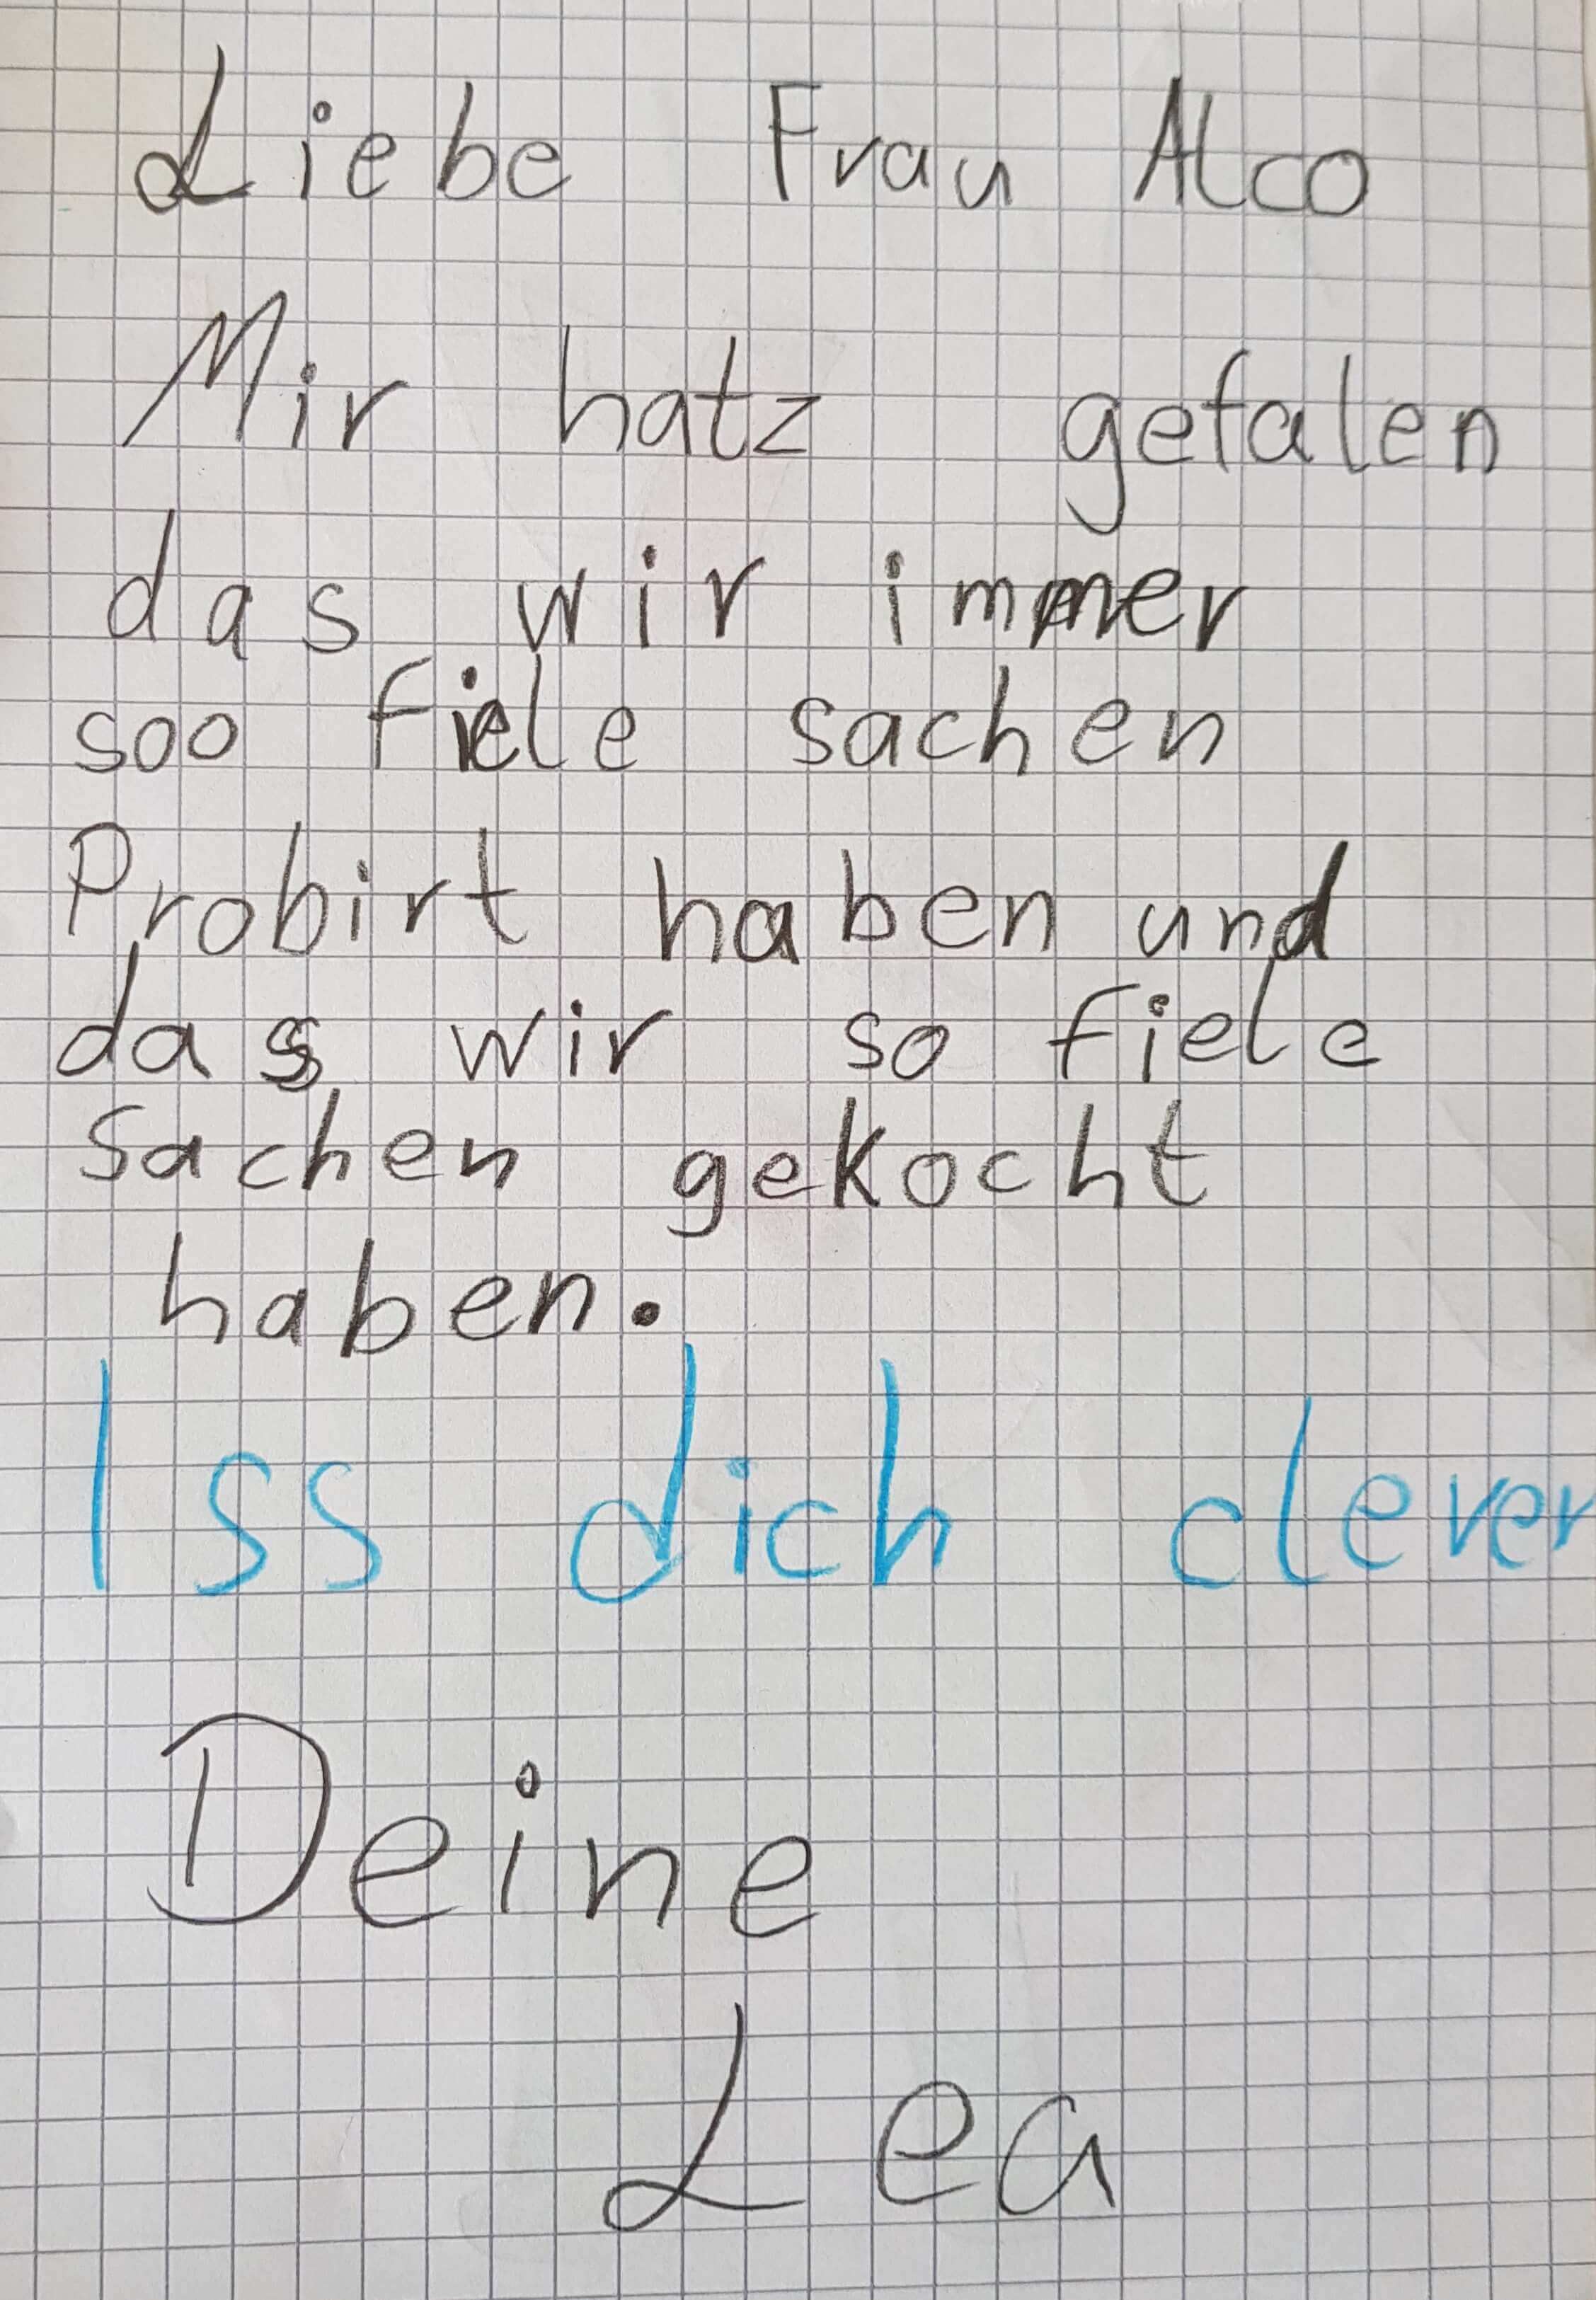 Liebe Frau Alco
Mir hatz gefalen
das wir immer
soo fiele sachen
Probirt haben und
das wir so fiele
Sachen gekocht
haben.
Iss dich clever
Deine
Lea